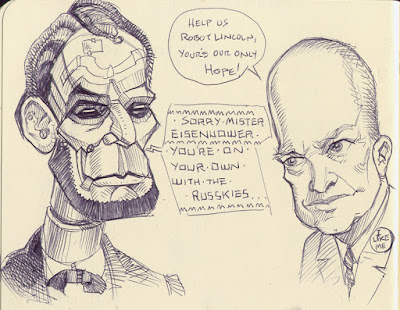 HELP US
ROBOT LINCOLN,
YOUR'E OUR ONLY
HOPE!
SORRY MISTER
EISENHOWER.
YOU'RE ON
YOUR OWN
WITH THE
RUSSKIES...
I
LIKE
ME